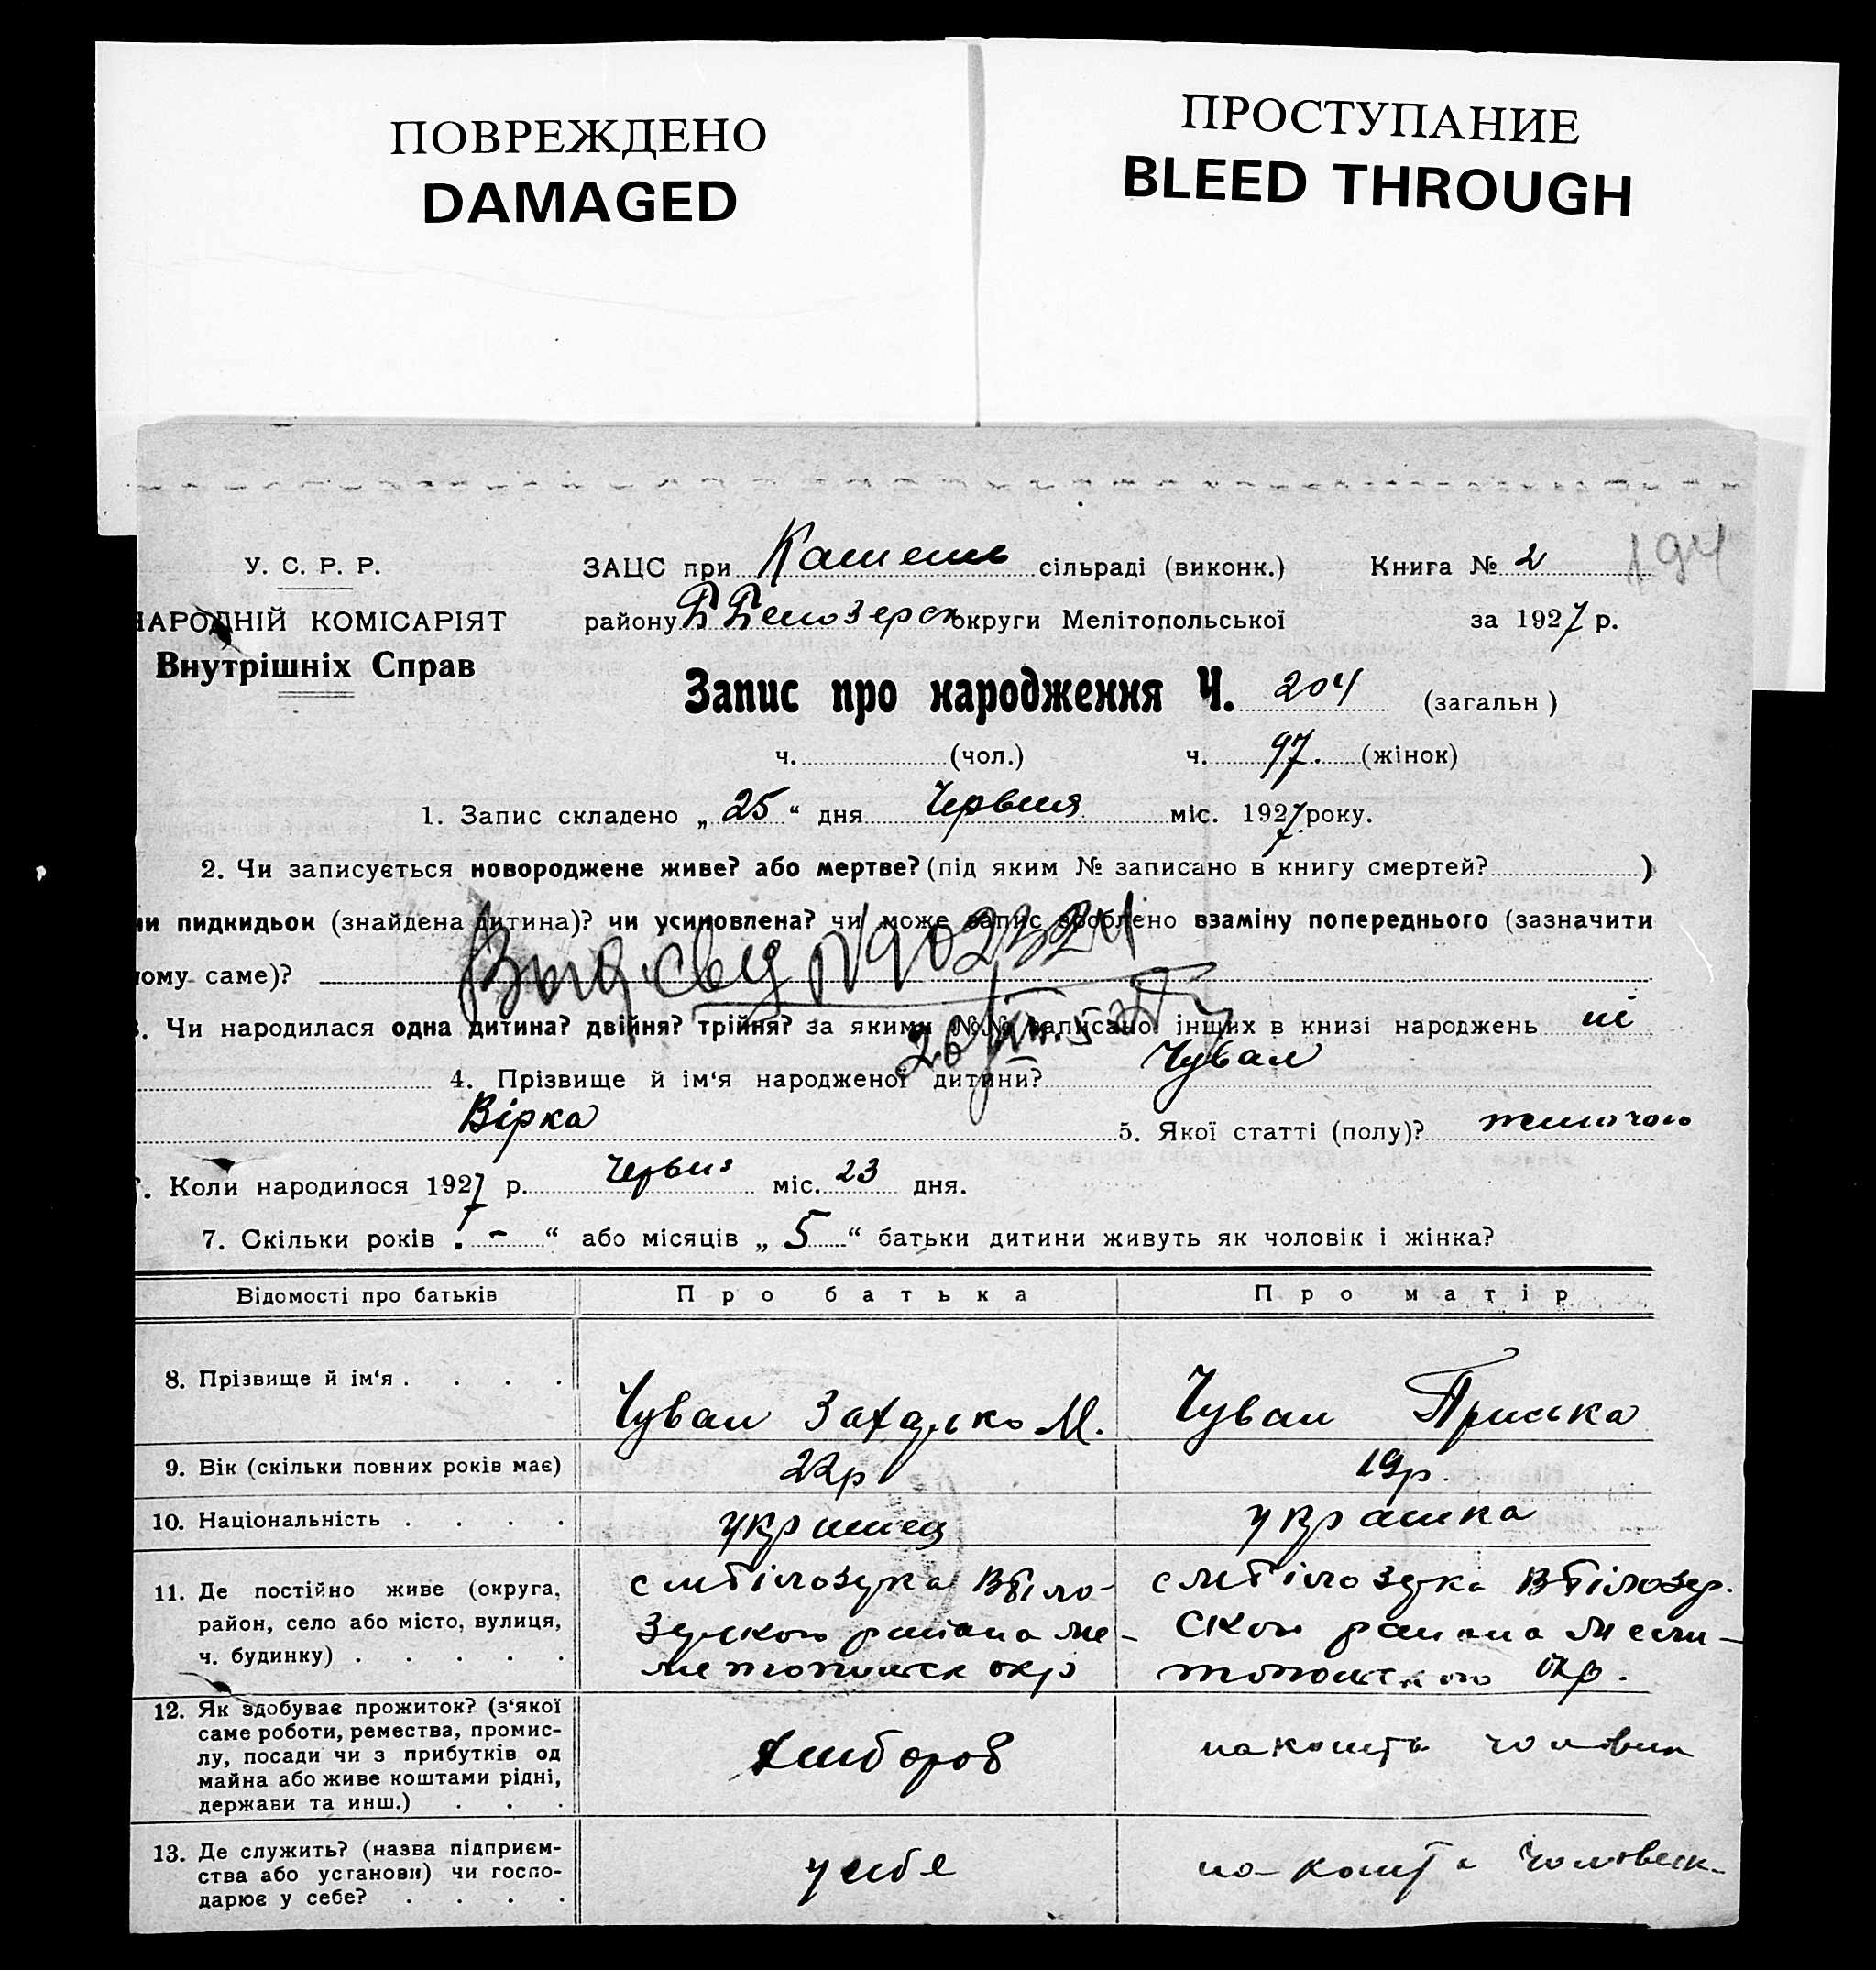 ПОВРЕЖДЕНО
DAMAGED
ПРОСТУПАНИЕ
BLEED THROUGH
194
У. С. Р. Р.
НАРОДНІЙ КОМІСАРІЯТ
Внутрішніх Справ
ЗАЦС при сільраді (виконк.) Книга № 2
району округи Мелітопольської за 1927 р.
Запис про народження Ч. 204 (загальн)
ч. (чол.) ч. 97. (жінок)
1. Запис складено „ 25 “ дня Червня міс. 1927 року.
2. Чи записується новороджене живе? або мертве? (під яким № записано в книгу смертей? )
чи пидкидьок (знайдена дитина)? чи усиновлена? чи може запис зроблено взаміну попереднього (зазначити
чому саме)?
3. Чи народилася одна дитина? двійня? трійня? за якими №№ записано інших в книзі народжень ні
4. Прізвище й ім‘я народженої дитини? Чувал
Вірка 5. Якої статті (полу)?
Коли народилося 1927 р. Червня міс. 23 дня.
7. Скільки років - “ або місяців „ 5 “ батьки дитини живуть як чоловік і жінка?
Відомості про батьків Про батька Про матір
8. Прізвище й ім‘я . . . . Чувал Захарько М. Чувал Приська
9. Вік (скільки повних років має) 22р 19р.
10. Національність . . . . українец українка
11. Де постійно живе (округа,
район, село або місто, вулиця,
ч. будинку) . . . . .
12. Як здобуває прожиток? (з‘якої
саме роботи, ремества, промис-
лу, посади чи з прибутків од
майна або живе коштами рідні,
держави та инш.) . . . хлибороб
13. Де служить? (назва підприєм-
ства або установи) чи госпо-
дарює у себе? . . . . у себе